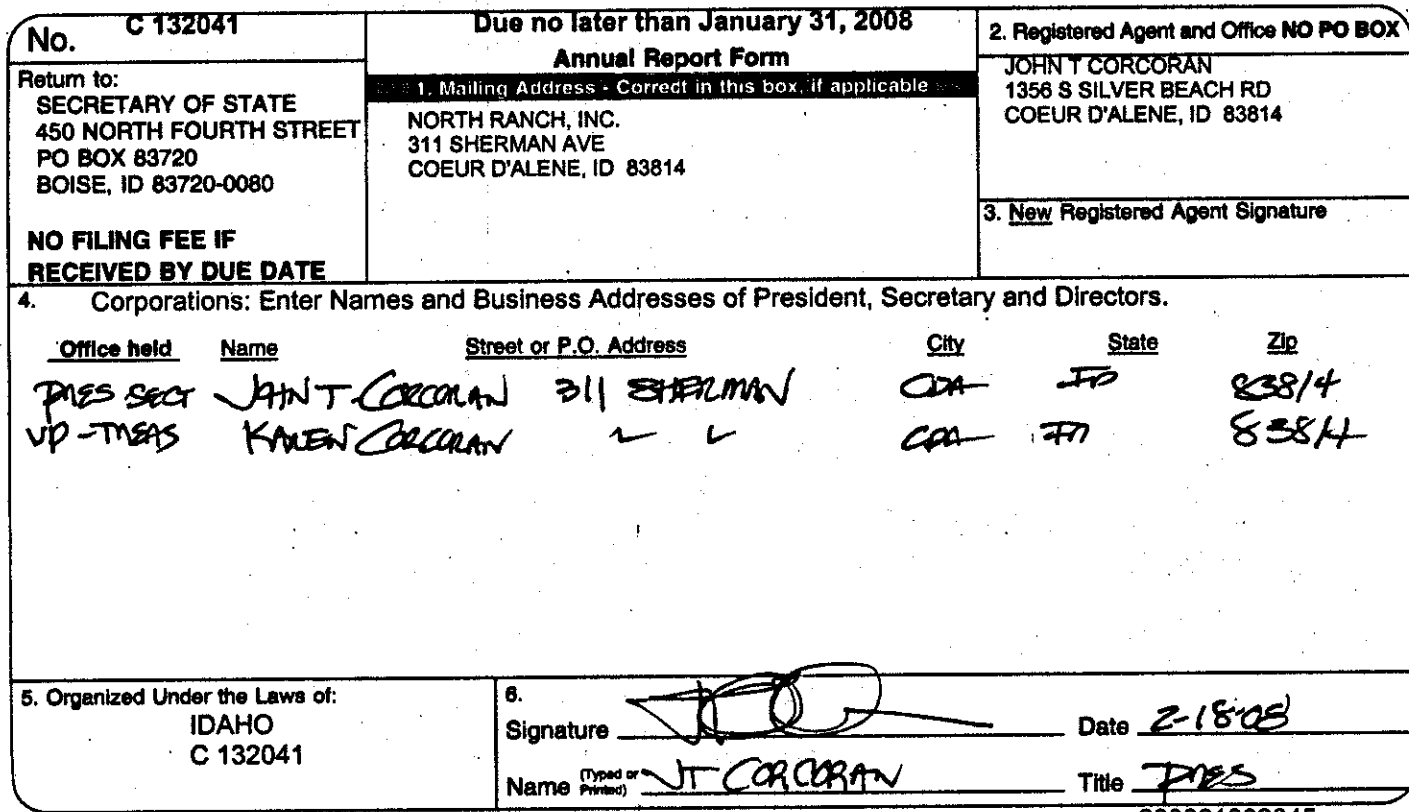 No. C 132041
Return to:
SECRETARY OF STATE
450 NORTH FOURTH STREET
PO BOX 83720
BOISE, ID 83720-0080
NO FILING FEE IF
RECEIVED BY DUE DATE
Due no later than January 31, 2008
Annual Report Form
1. Mailing Address - Correct in this box, if applicable
NORTH RANCH, INC.
311 SHERMAN AVE
COEUR D'ALENE, ID 83814
2. Registered Agent and Office NO PO BOX
JOHN T CORCORAN
1356 S SILVER BEACH RD
COEUR D'ALENE, ID 83814
3. New Registered Agent Signature
4. Corporations: Enter Names and Business Addresses of President, Secretary and Directors.
Office held Name Street or P.O. Address City State Zip
PRES SECT JOHN T CORCORAN 311 SHERMAN CDA ID 83814
VP-TREAS KAREN CORCORAN CDA ID 83814
5. Organized Under the Laws of:
IDAHO
C 132041
6.
Signature Date 2-18-08
Name (Typed or Printed) JT CORCORAN Title PRES